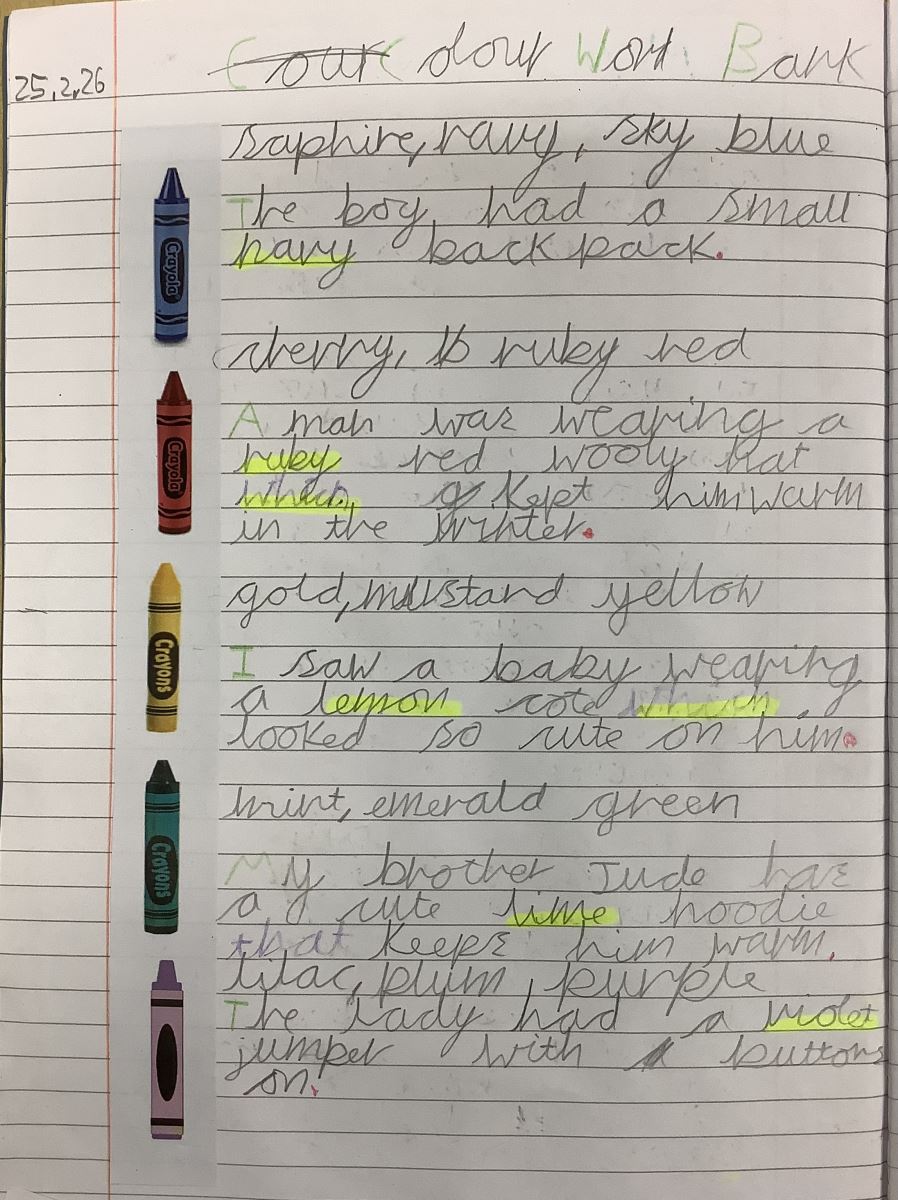 25.2.26
Colour Word Bank
saphire, navy, sky blue
The boy had a small
navy back pack.
cherry, ruby red
A man was wearing a
ruby red wooly hat
which kept him warm
in the winter.
gold, mustand yellow
I saw a baby wearing
a lemon cote which
looked so cute on him.
mint, emerald green
My brother Jude has
a cute lime hoodie
that keeps him warm.
lilac, plum, purple
The lady had a violet
jumper with buttons
on.
Crayola
Crayola
Crayons
Crayons